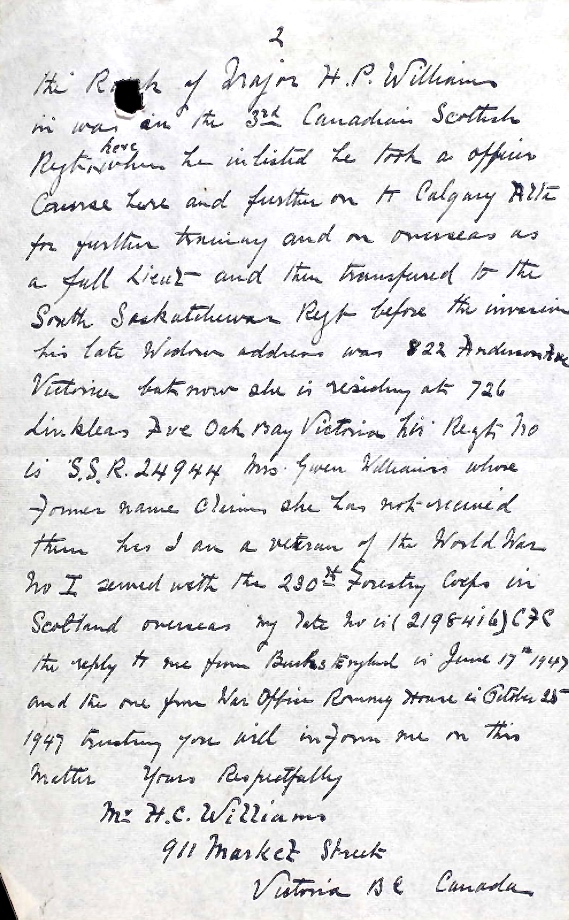 2
the Rank of Major H.P. Williams
in was in the 3rd Canadian Scottish
Regt here when he inlisted he took a officer
Course here and further on to Calgary Alta
for further training and on overseas as
a full Lieut and then transfured to the
South Saskatchewan Regt before the invasion
his late Widow address was 822 Anderson Ave
Victoria but now she is residing at 726
Linkleas Ave Oak Bay Victoria his Regt No
is S.S.R. 24944 Mrs Gwen Williams whose
Former name Claims she has not received
them has I am a veteran of the World War
No I served with the 230th Forestry Corps in
Scotland overseas my late No is (2198416) CFC
the reply to me from Bucks England is June 17th 1947
and the one from War Office Romney House is October 25
1947 trusting you will inform me on this
Matter Yours Respectfully
Mr H.C. Williams
911 Market Street
Victoria BC Canada